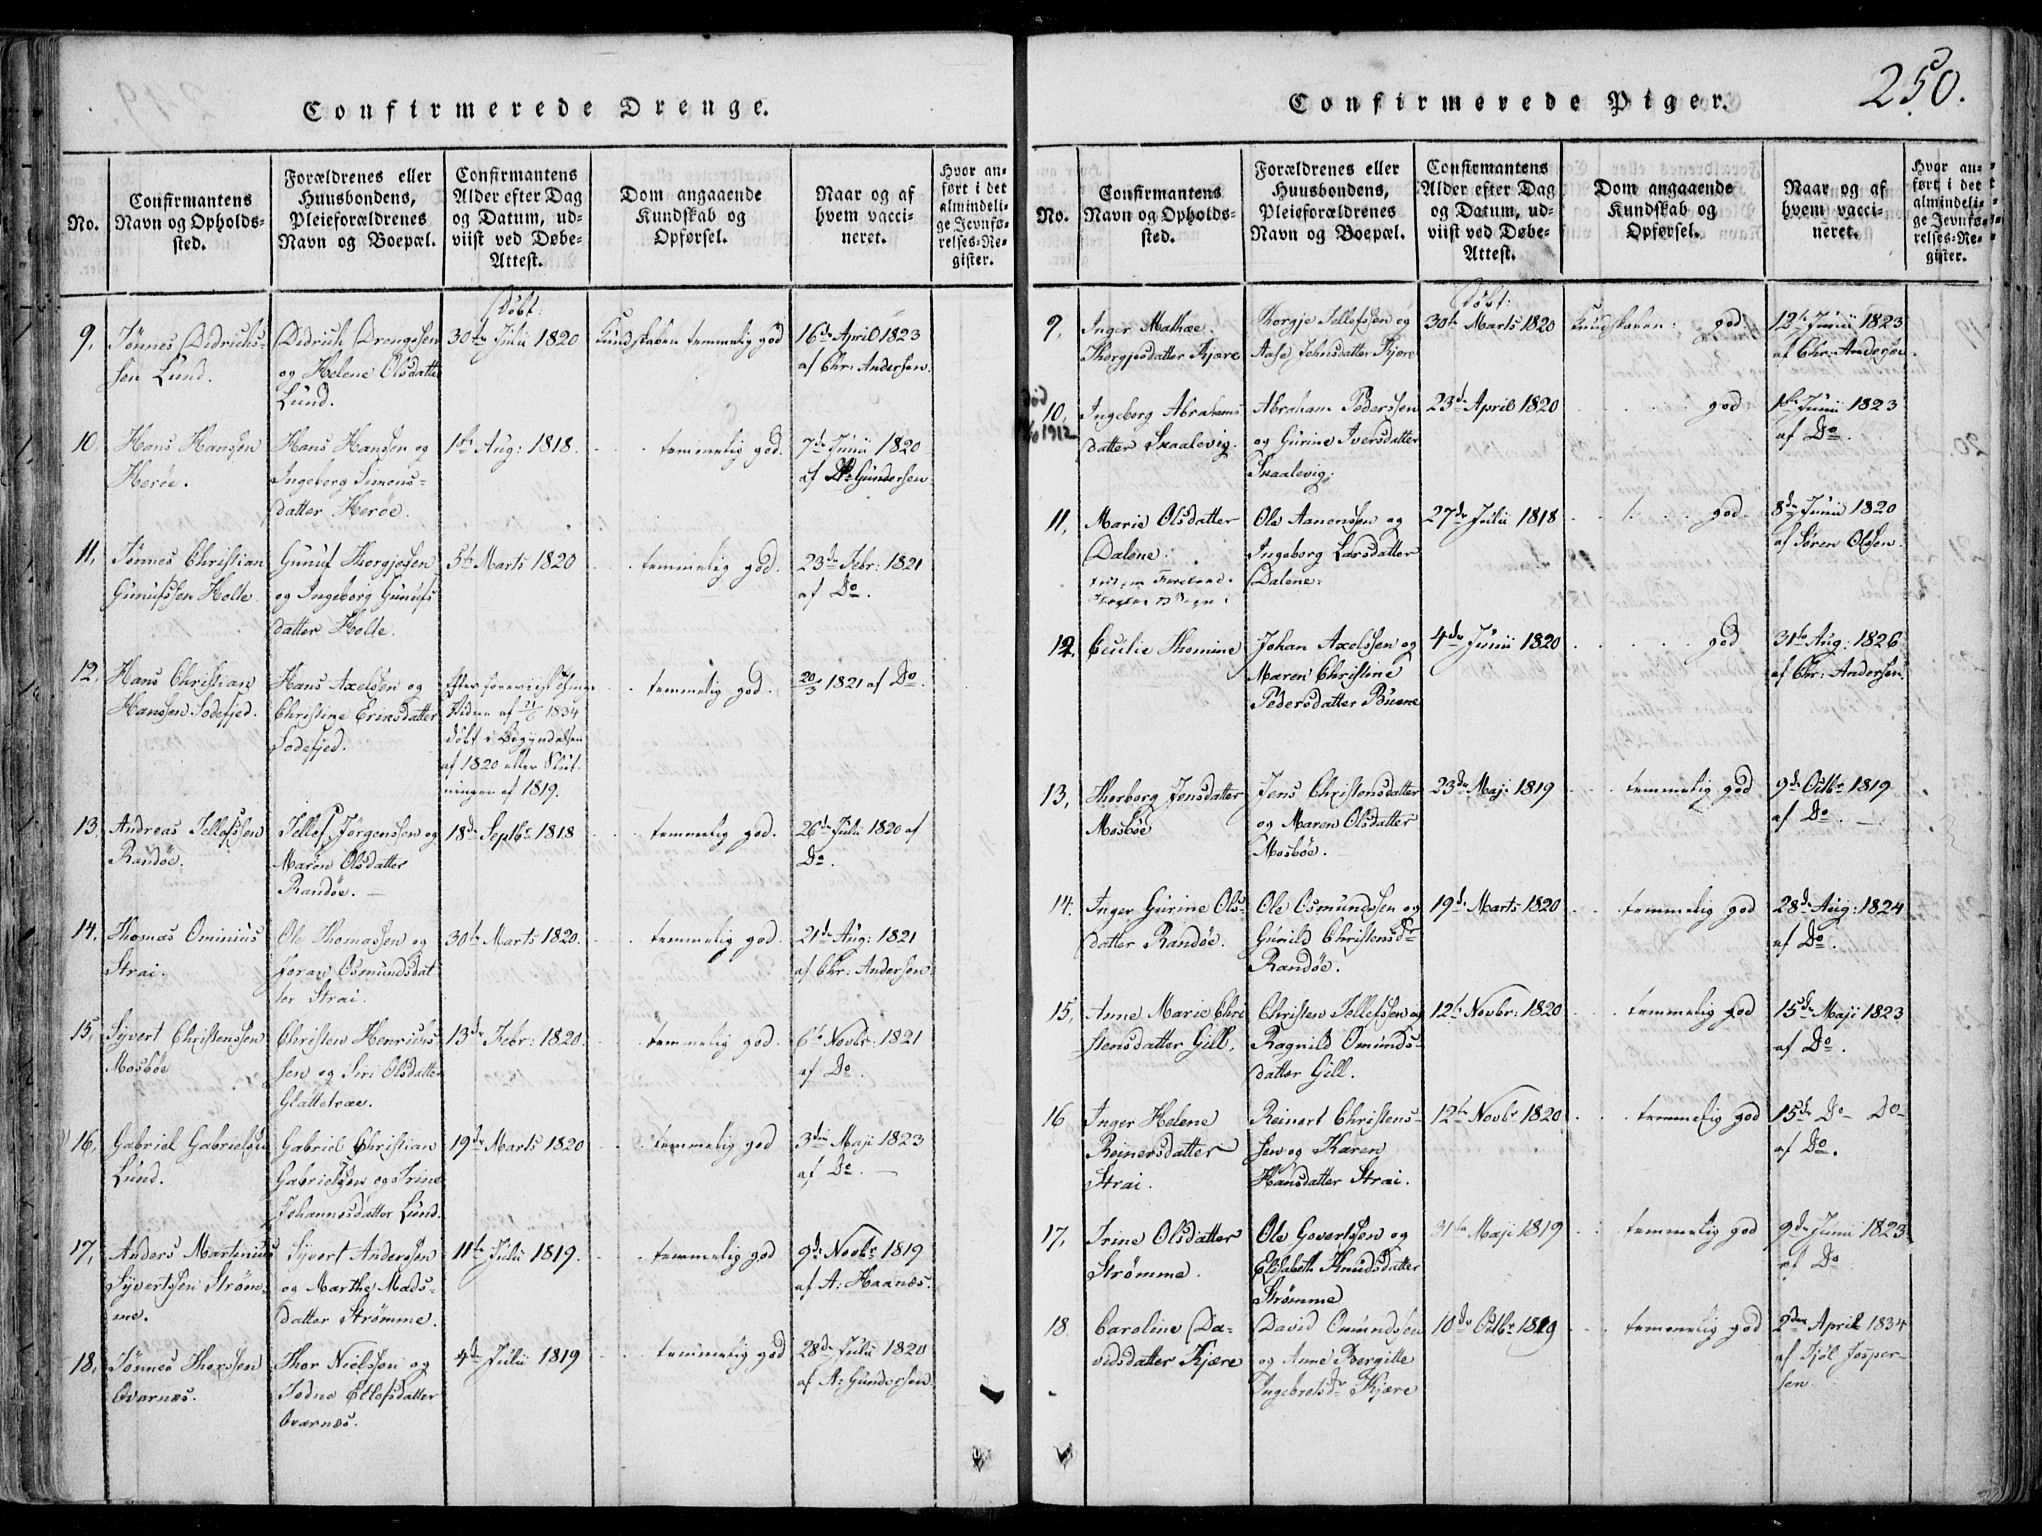 Confirmerede Drenge.
No.
Confirmantens
Navn og Opholds-
sted.
Forældrenes eller
Huusbondens,
Pleieforældrenes
Navn og Boepæl.
Confirmantens
Alder efter Dag
og Datum, ud-
viist ved Døbe-
Attest.
Dom angaaende
Kundskab og
Opførsel.
Naar og af
hvem vacci-
neret.
Hvor an-
ført i det
almindeli-
ge Jevnfø-
relses-Re-
gister.
9,
Tønnes Didrichs-
sen Lund.
Didrich Drengesen
og Helene Olsdatter
Lund.
Døbt:
30te Julii 1820
Kundskaben temmelig god
16de April 1823
af Chr: Andersen.
10,
Hans Hansen
Herøe.
Hans Hansen og
Ingeborg Simons-
datter Herøe.
1ste Aug: 1818.
temmelig god.
7de Junii 1820
af A: Gundersen
11,
Tønnes Christian
Gunufssen Holte.
Gunuf Thorgjesen
og Ingeborg Gunufs
datter Holte.
5te Marts 1820
temmelig god.
23de Febr: 1821
af Do.
12,
Hans Christian
Hanssen Sodefjed.
Hans Axelsen og
Christine Erensdatter
Sodefjed.
af 21/6 1834
døbt i Begyndelsen
af 1820 eller Slut-
ningen af 1819.
temmelig god.
20/3 1821 af Do.
13,
Andreas Tellefssen
Randøe.
Tellef Jørgenssen og
Maren Olsdatter
Randøe. —
18de Septbr 1818
temmelig god.
26de Julii 1820 af
Do.
14,
Thomas Ominius
Strai.
Ole Thomassen og
Joran Osmundsdat
ter Strai.
30te Marts 1820.
temmelig god.
21de Aug: 1821
af Chr: Andersen.
15,
Syvert Christenssen
Mosbøe
Christen Henrichs-
sen og Siri Olsdatter
Glattetræe.
13de Febr: 1820.
temmelig god.
6te Novbr: 1821
af Do.
16,
Gabriel Gabrielsen
Lund.
Gabriel Christian
Gabrielsen og Trine
Johannesdatter Lund.
19de Marts 1820
temmelig god
3die Maji 1823
af Do. —
17,
Anders Martinius
Syvertssen Strøm-
me.
Syvert Anderssen
og Marthe Mads-
datter Strømme.
11te Julii 1819.
temmelig god
9de Novbr 1819
af A: Haanæs.
18,
Tønnes Thorssen
Qvarnæs.
Thor Nielssen og
Todne Ellefsdatter
Qvarnæs.
4de Julii 1819
temmelig god
28de Julii 1820
af A: Gundersen.
250.
Confirmerede Piger.
No.
Confirmantens
Navn og Opholds-
sted.
Forældrenes eller
Huusbondens,
Pleieforældrenes
Navn og Boepæl.
Confirmantens
Alder efter Dag
og Datum, ud-
viist ved Døbe-
Attest.
Dom angaaende
Kundskab og
Opførsel.
Naar og af
hvem vacci-
neret.
Hvor an-
ført i det
almindeli-
ge Jevnfø-
relses-Re-
gister.
9,
Inger Mathæe
Thorgjesdatter Kjære
Thorgje Tellefssen og
Aase Johnsdatter Kjære
Døbt:
30te Marts 1820
Kundskaben: god.
12te Junii 1823
af Chr: Andersen.
død
1912
10,
Ingeborg Abrahams
datter Skaalevig.
Abraham Pederssen
og Gurine Iversdatter
Skaalevig.
23de April 1820
god
1ste Junii 1823
af Do.
11,
Marie Olsdatter
Dalene.
Ole Aanonssen og
Ingeborg Larsdatter
Dalene.
27de Julii 1818
god.
8de Junii 1820
af Søren Olssen.
12,
Cecilie Thomine
Johan Axelssen og
Maren Christine
Pedersdatter Buene
4de Junii 1820
god
31te Aug: 1826
af Chr: Andersen.
13,
Thorborg Jensdatter
Mosbøe
Jens Christensdatter
og Maren Olsdatter
Mosbøe.
23de Maj: 1819
temmelig god
9de Octbr 1819
af Do. —
14.
Inger Gurine Ols-
datter Randøe.
Ole Osmundssen og
Gunild Christensdr
Randøe.
19de Marts 1820
temmelig god
28de Aug: 1824
af Do.
15,
Anne Marie Chri
stensdatter Gill.
Christen Tellefssen og
Ragnild Omunds-
datter Gill.
12te Novbr: 1820
temmelig god
15de Maji 1823
af Do.
16
Inger Helene
Reinersdatter
Strai.
Reinert Christens-
sen og Karen
Hansdatter Strai.
12te Novbr 1820
temmelig god
15de Do— Do—
af Do.
17,
Trine Olsdatter
Strømme.
Ole Govertssen og
Elisabeth Knudsdatter
Strømme
31te Maji 1819
temmelig god
9de Junii 1823
af Do
18
Caroline Da-
vidsdatter Kjære
David Omundssen
og Anne Bergitte
Ingebretsdr Kjære
10de Octbr 1819
temmelig god
2den April 1834
af Kjøl. Jesper-
sen